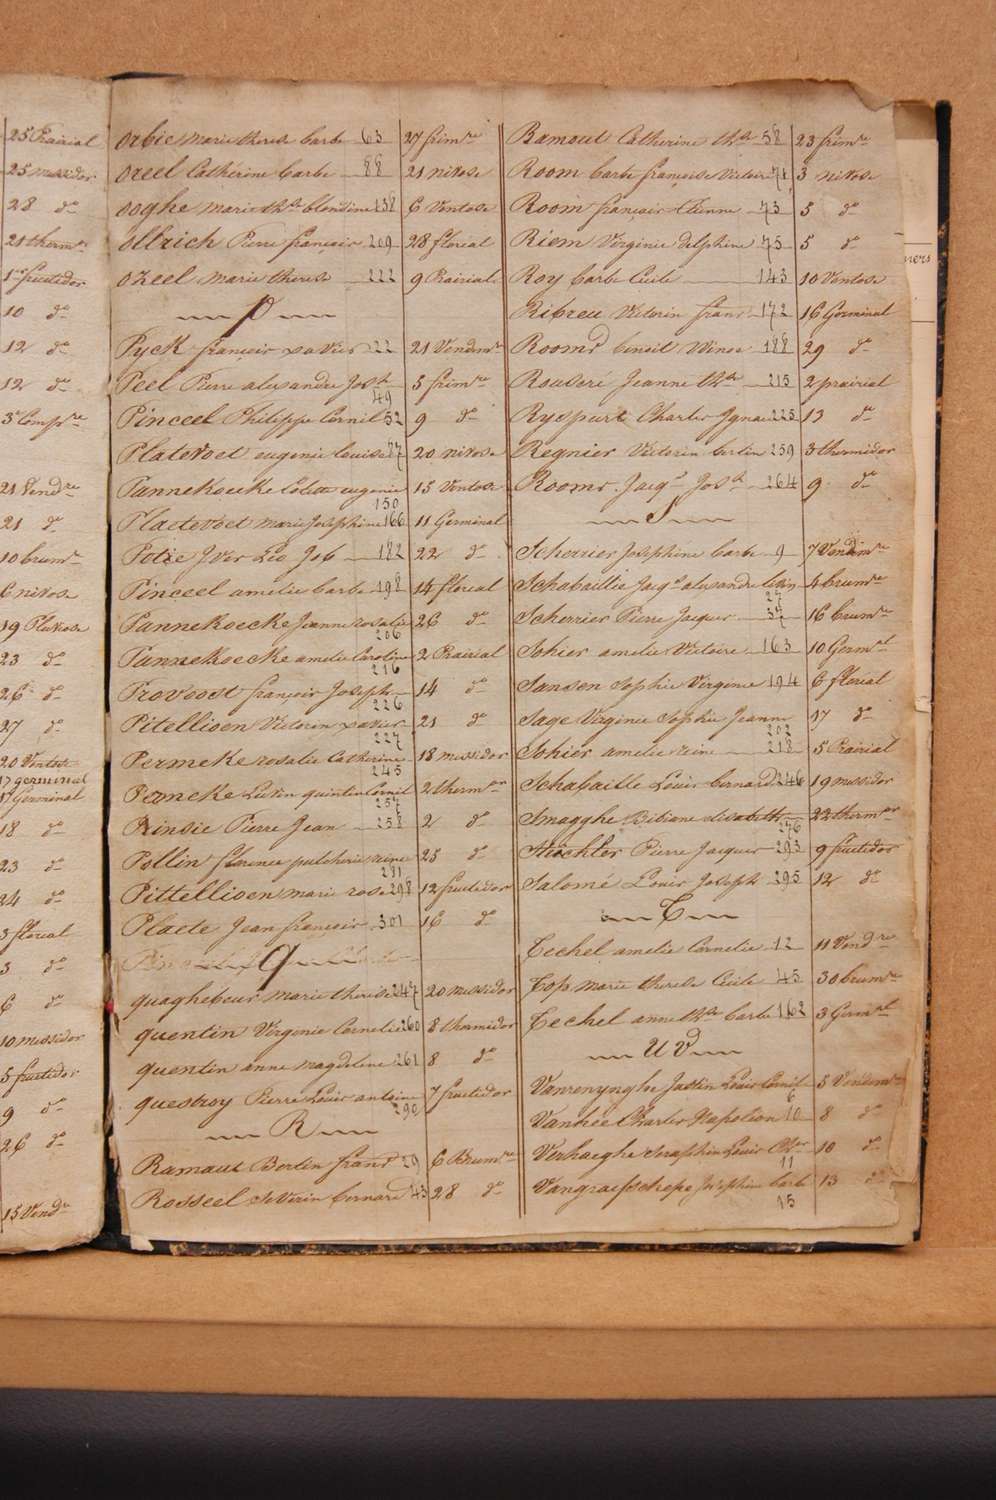 25 Prairial
25 messidor
28 do
21 therm.re
1er fructidor
10 do
12 do
12 do
3e Comp.re
21 Vend.re
21 do
10 brum.re
6 nivose
19 Pluviose
23 do
26 do
27 do
20 Ventose
17 germinal
17 Germinal
18 do
23 do
24 do
3 floreal
3 do
6 do
10 messidor
5 fructidor
9 do
26 do
15 Vend.re
Orbie marie therese barbe 63 27 frim.re
oreel Cathérine barbe 88 21 nivose
ooghe marie th.se blondine 138 6 Ventose
ollrich Pierre françois 209 28 floréal
ozeel marie therese 222 9 Prairial
P
Pyck françois xavier 22 21 Vendm.re
Peel Pierre alexandre Jos.h 49 5 frim.re
Pinceel Philippe Cornil 52 9 do
Platevoet eugenie louise 87 20 nivose
Pannekoucke Colette eugenie 150 15 Ventose
Plactevoet marie Josephine 166 11 Germinal
Potie Iver Léo Job 182 22 do
Pinceel amelie barbe 198 14 floreal
Pannekoecke Jeanne rosalie 206 26 do
Pannekoecke amelie Caroline 216 2 Prairial
Provoost françois Joseph 226 14 do
Pitellioen Victorin xavier 227 21 do
Permeke rosalie Catherine 245 18 messidor
Permeke Livin quintin Cornil 257 2 therm.or
Rinsie Pierre Jean 258 2 do
Pollin florence pulcherie reine 281 25 do
Pittellioen marie rose 298 12 fructidor
Placte Jean françois 301 16 do
q
quaghebeur marie therese 247 20 messidor
quentin Virginie Cornelie 260 8 thermidor
quentin anne magdelene 261 8 do
questroy Pierre Louis antoine 290 7 fructidor
R
Ramaut Bertin franç.s 29 6 Brum.re
Rosseel Severin bernard 43 28 do
Ramout Catherine th.se 58 23 frim.re
Room barbe françoise Victoire 71 3 nivose
Room françois Etienne 73 5 do
Riem Virginie delphine 75 5 do
Roy barbe Cécile 143 10 Ventose
Ribreu Victorin franç.s 172 16 Germinal
Rooms benoit Winoc 188 29 do
Rouseré Jeanne th.se 215 2 prairial
Ryspurt Charles Ignace 225 13 do
Regnier Victorin bertin 259 3 thermidor
Rooms Jacq.s Jos.h 264 9 do
S
Scherrier Josephine barbe 9 7 Vendm.re
Schabaillie Jacq.s alexandre livin 27 4 brum.re
Scherrier Pierre Jacques 37 16 brum.re
Sohier amelie Victoire 163 10 Germ.al
Sansen Sophie Virginie 194 6 floreal
Sage Virginie Sophie Jeanne 202 17 do
Sohier amelie reine 218 5 Prairial
Schabaille Louis bernard 246 19 messidor
Smagghe Bibiane elisabeth 276 22 therm.or
Stichler Pierre Jacques 293 9 fructidor
Salomé Louis Joseph 295 12 do
T
Techel amelie Cornelie 12 11 Vend.re
Top marie therese Cécile 45 30 brum.re
Techel anne th.se barbe 162 3 Germ.al
U V
Vanrenynghe Justin Louis Cornil 6 5 Vendem.re
Vanhée Charles Napoleon 10 8 do
Verhaeghe Seraphin Louis 11 10 do
Vangraefschepe Josephine barbe 15 13 do